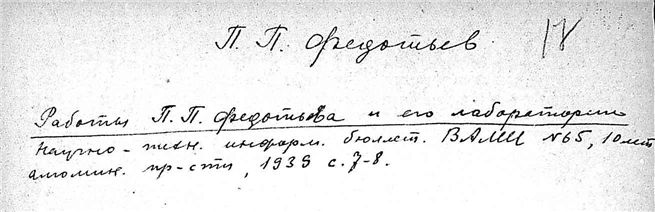 П. П. Федотьев 18
Работы П. П. Федотьева и его лаборатории
Научно-техн. информ. бюллет. ВАМИ №65, 10 лет
алюмин. пр-сти, 1939 с. 7-8.